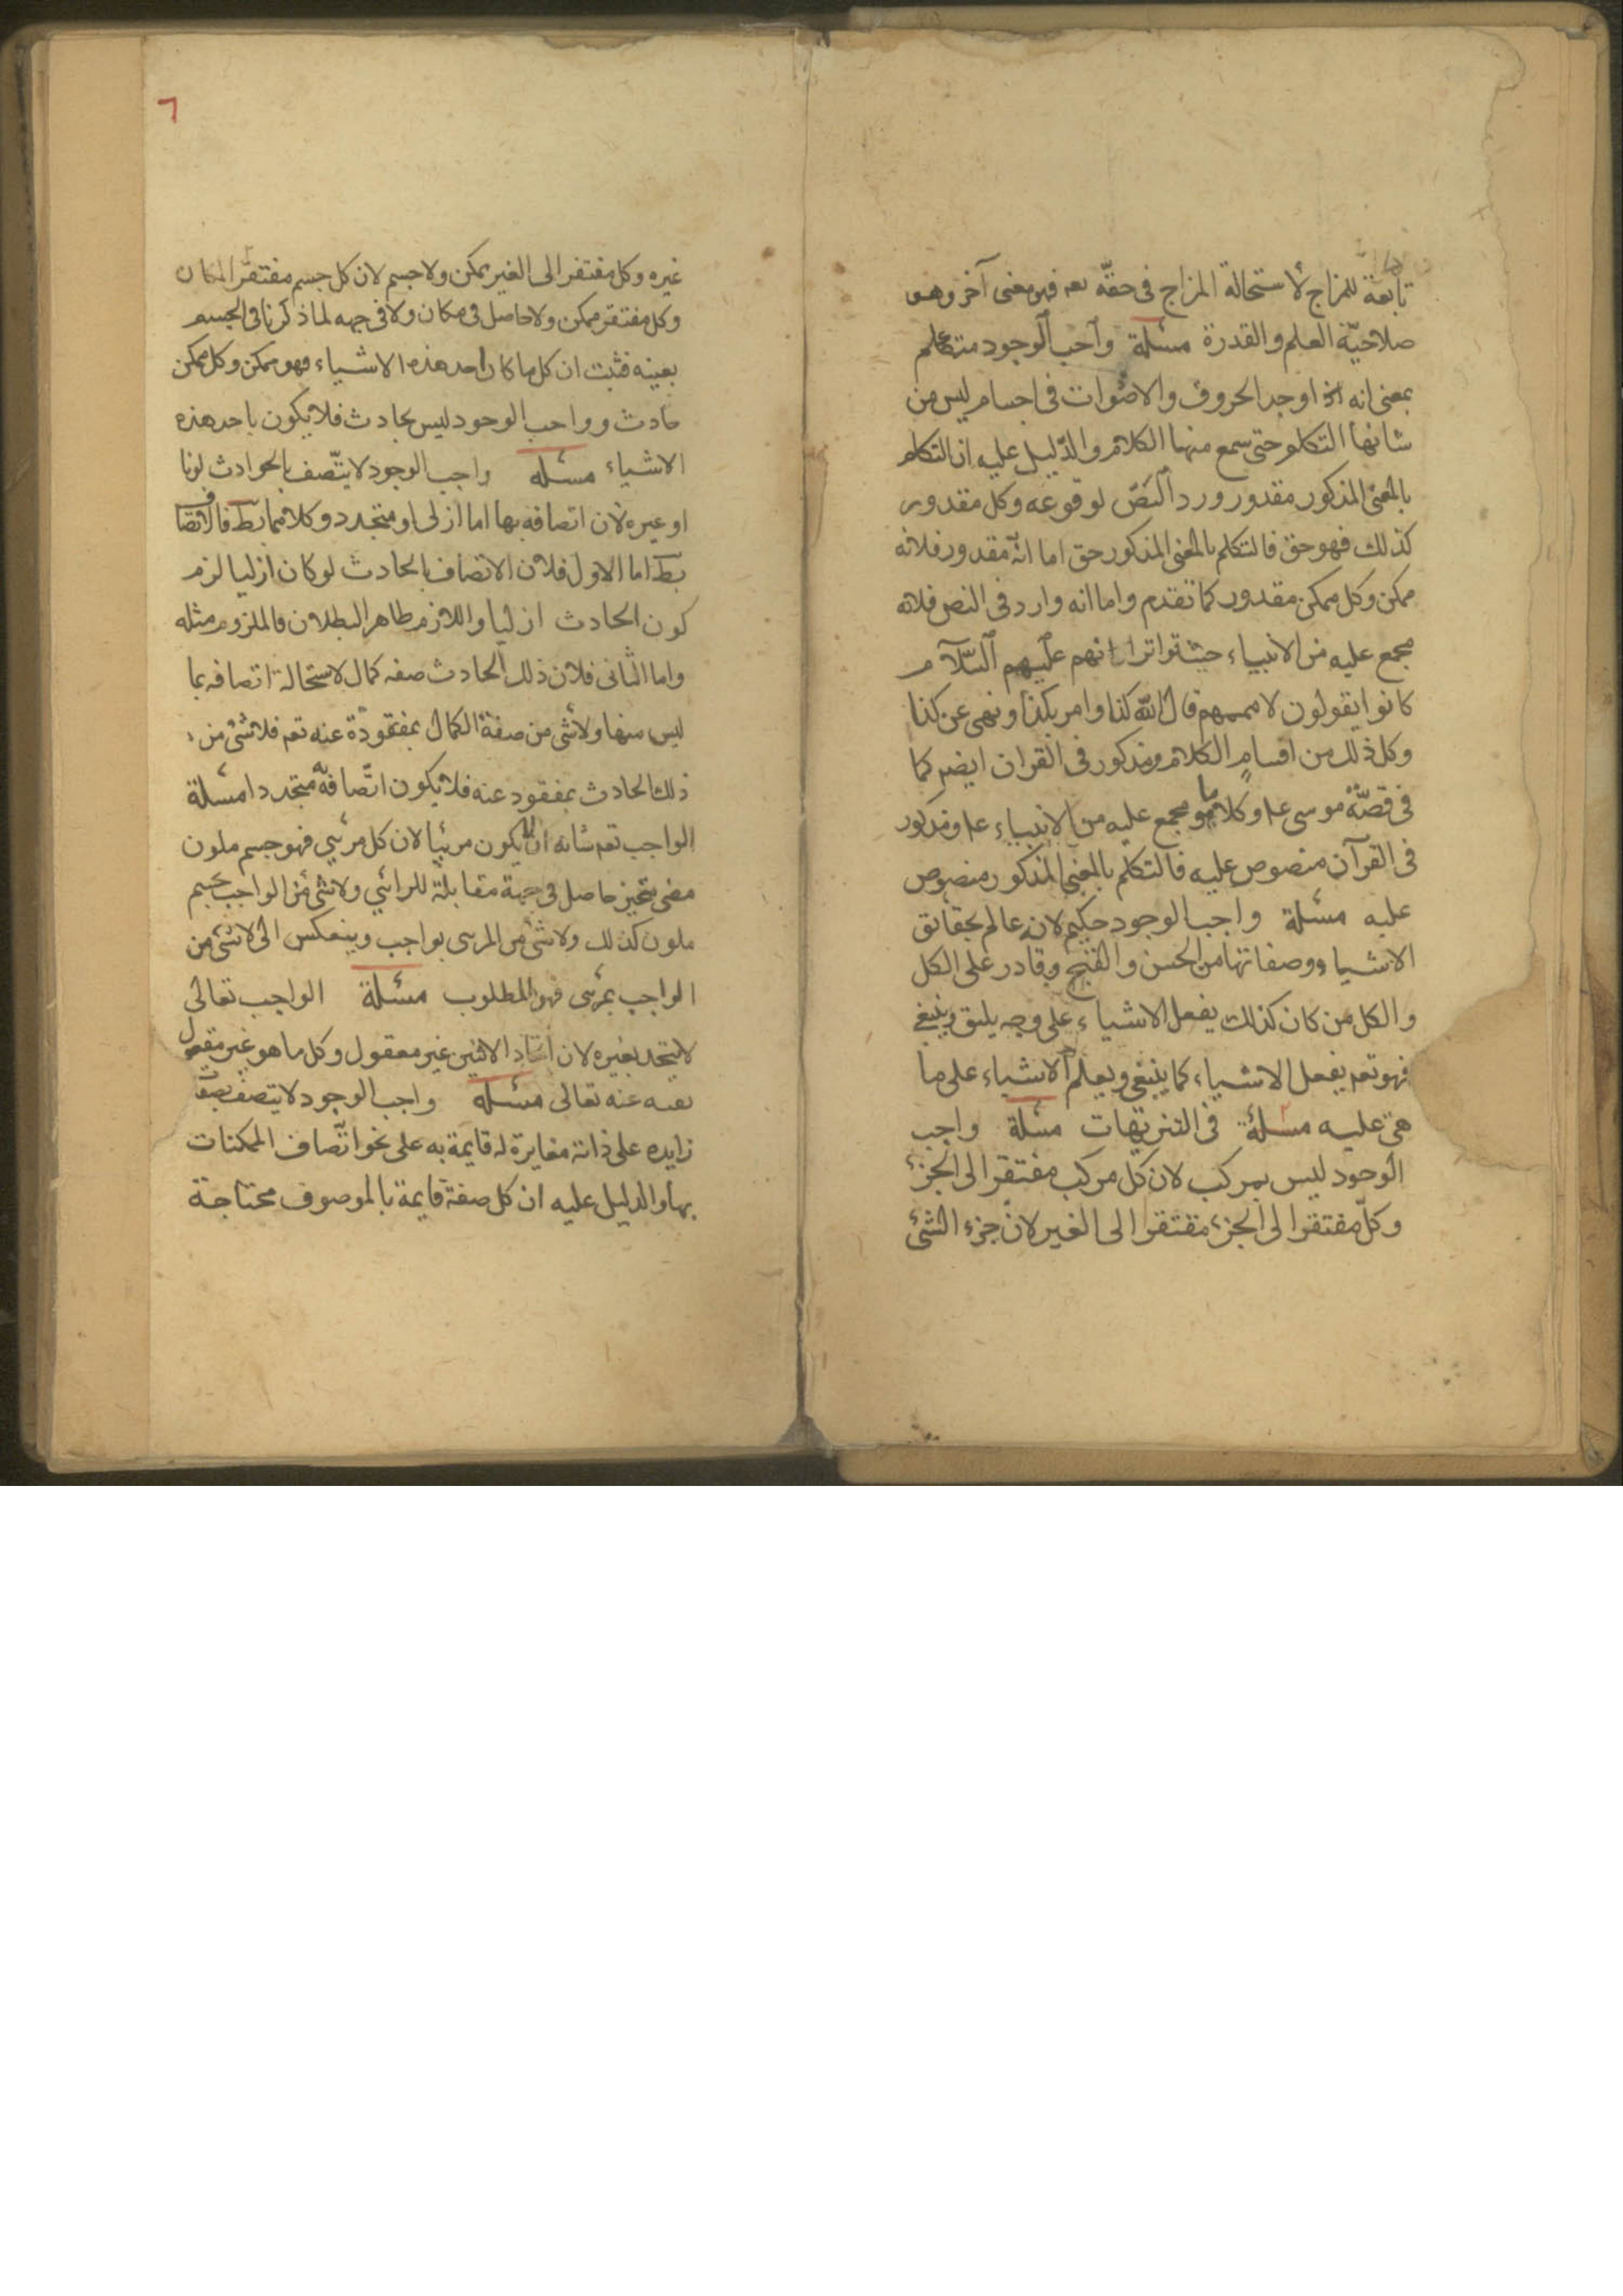 تابعة للمزاج لاستحالة المزاج فى حقّه تعه فهو معنى آخر وهو
صلاحيّة العلم والقدرة مسئلة واجب الوجود متكلم
بمعنى انه اذا وجد الحروف والاصوات فى اجسام ليس من
شانها التكلم حتى سمع منها الكلام والدّليل عليه ان التكلم
بالمعنى المذكور مقدور ورد النصّ لوقوعه وكل مقدور
كذلك فهو حق فالتكلم بالمعنى المذكور حق اما انّه مقدور فلانه
ممكن وكل ممكن مقدور كما تقدم واما انه وارد فى النص فلانه
مجمع عليه من الانبياء حيث تواتر انهم عليهم السّلام
كانوا يقولون لاممهم قال الله كذا وامر بكذا ونهى عن كذا
وكل ذلك من اقسام الكلام ومذكور فى القران ايضم كما
فى قصّة موسى عم وكلما هو مجمع عليه من الانبياء عم ومذكور
فى القرآن منصوص عليه فالتكلم بالمعنى المذكور منصوص
عليه مسئلة واجب الوجود حكيم لانه عالم بحقائق
الاشياء ووصفاتها من الحسن والقبح وقادر على الكل
والكل من كان كذلك يفعل الاشياء على وجه يليق وينبغى
فهو تعه يفعل الاشياء كما ينبغى ويعلم الاشياء على ما
هى عليه مسلة فى التنزيهات مسئلة واجب
الوجود ليس بمركب لان كل مركب مفتقر الى الجزء
وكلّ مفتقر الى الجزء مفتقر الى الغير لان جزء الشئ
٦
غيره وكل مفتقر الى الغير ممكن ولا جسم لان كل جسم مفتقر المكان
وكل مفتقر ممكن ولا حاصل فى مكان ولا فى جهه لما ذكرنا فى الجسم
بعينه فثبت ان كل ما كان احد هذه الاشياء فهو ممكن وكل ممكن
حادث وواجب الوجود ليس بحادث فلا يكون باحد هذه
الاشياء مسئله واجب الوجود لا يتّصف بالحوادث لونا
او غيره لان اتصافه بها اما ازلى او متجدد وكلاهما بط فالاتصاف
بط اما الاول فلان الاتصاف بالحادث لو كان ازليا لزم
كون الحادث ازليا واللازم ظاهر البطلان فالملزوم مثله
واما الثانى فلان ذلك الحادث صفه كمال لاستحالة اتصافه بما
ليس منها ولا شئ من صفة الكمال بمفقودة عنه تعه فلا شئ من
ذلك الحادث بمفقود عنه فلا يكون اتّصافه متجددا مسئلة
الواجب تعه شانه ان لا يكون مرئيا لان كل مرئى فهو جسم ملون
مضى متحيز حاصل فى جهة مقابلة للرائى ولا شئ من الواجب بجسم
ملون كذلك ولا شئ من المرى بواجب وينعكس الى لا شئ من
الواجب بمرئى فهو المطلوب مسئلة الواجب تعالى
لا يتحد بغيره لان اتحاد الاثنين غير معقول وكل ما هو غير معقول
نفيه عنه تعالى مسئله واجب الوجود لا يتصف بصفة
زايده على ذاته مغايرة له قايمة به على نحو اتّصاف الممكنات
بها والدليل عليه ان كل صفة قايمة بالموصوف محتاجة